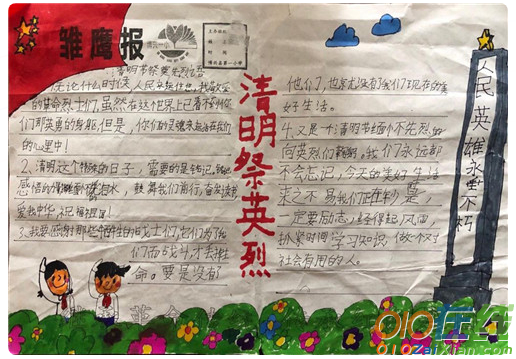 雏鹰报
清明节祭奠先烈语
1、无论什么时候,人民永记住您,我敬爱
的革命烈士们,虽然在这个世界上已看不到你
们那英勇的身躯,但是,你们的灵魂永远活在我们
的心里中!
2、清明这个特殊的日子,需要的是铭记,就把
感悟的
爱我中华,祝福祖国!
3、我要感谢那些牺牲的战士们,他们为了我
们而战斗,才去牲
命。要是没有
清明祭英烈
他们,也就没有我们现在的美
好生活。
4、又是一年清明节缅怀先烈的
向英烈们鞠躬。我们永远都
不会忘记,今天的美好生活
来之不易我们正在
一定要励志,经得起风雨,
抓紧时间学习知识,做个对
社会有用的人。
人民英雄永垂不朽
010在线
010zaixian.com